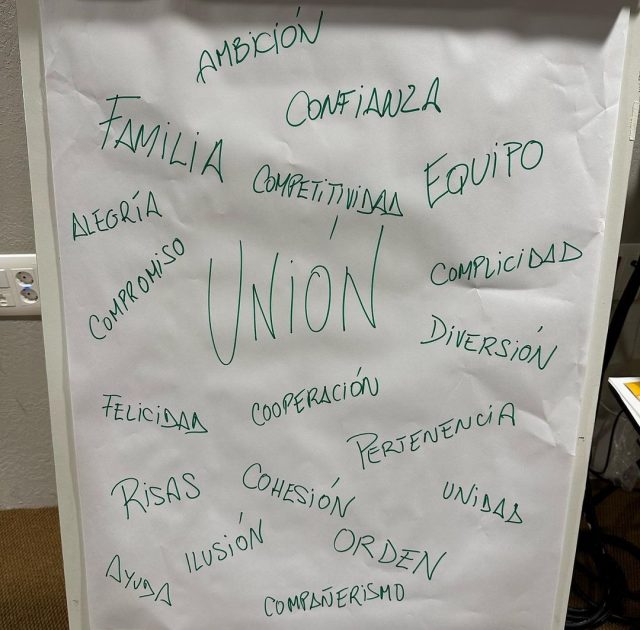 AMBICIÓN
CONFIANZA
FAMILIA
COMPETITIVIDAD
EQUIPO
ALEGRÍA
COMPROMISO
UNIÓN
COMPLICIDAD
DIVERSIÓN
FELICIDAD
COOPERACIÓN
PERTENENCIA
RISAS
COHESIÓN
UNIDAD
ILUSIÓN
ORDEN
AYUDA
COMPAÑERISMO